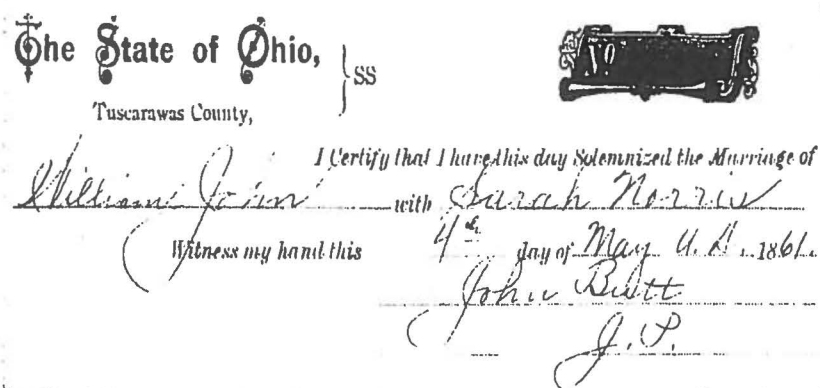 The State of Ohio,
SS
Tuscarawas County,
No
I Certify that I have this day Solemnized the Marriage of
William John with Sarah Norris
Witness my hand this 4th day of May A.D. 1861.
John Butt
J.P.